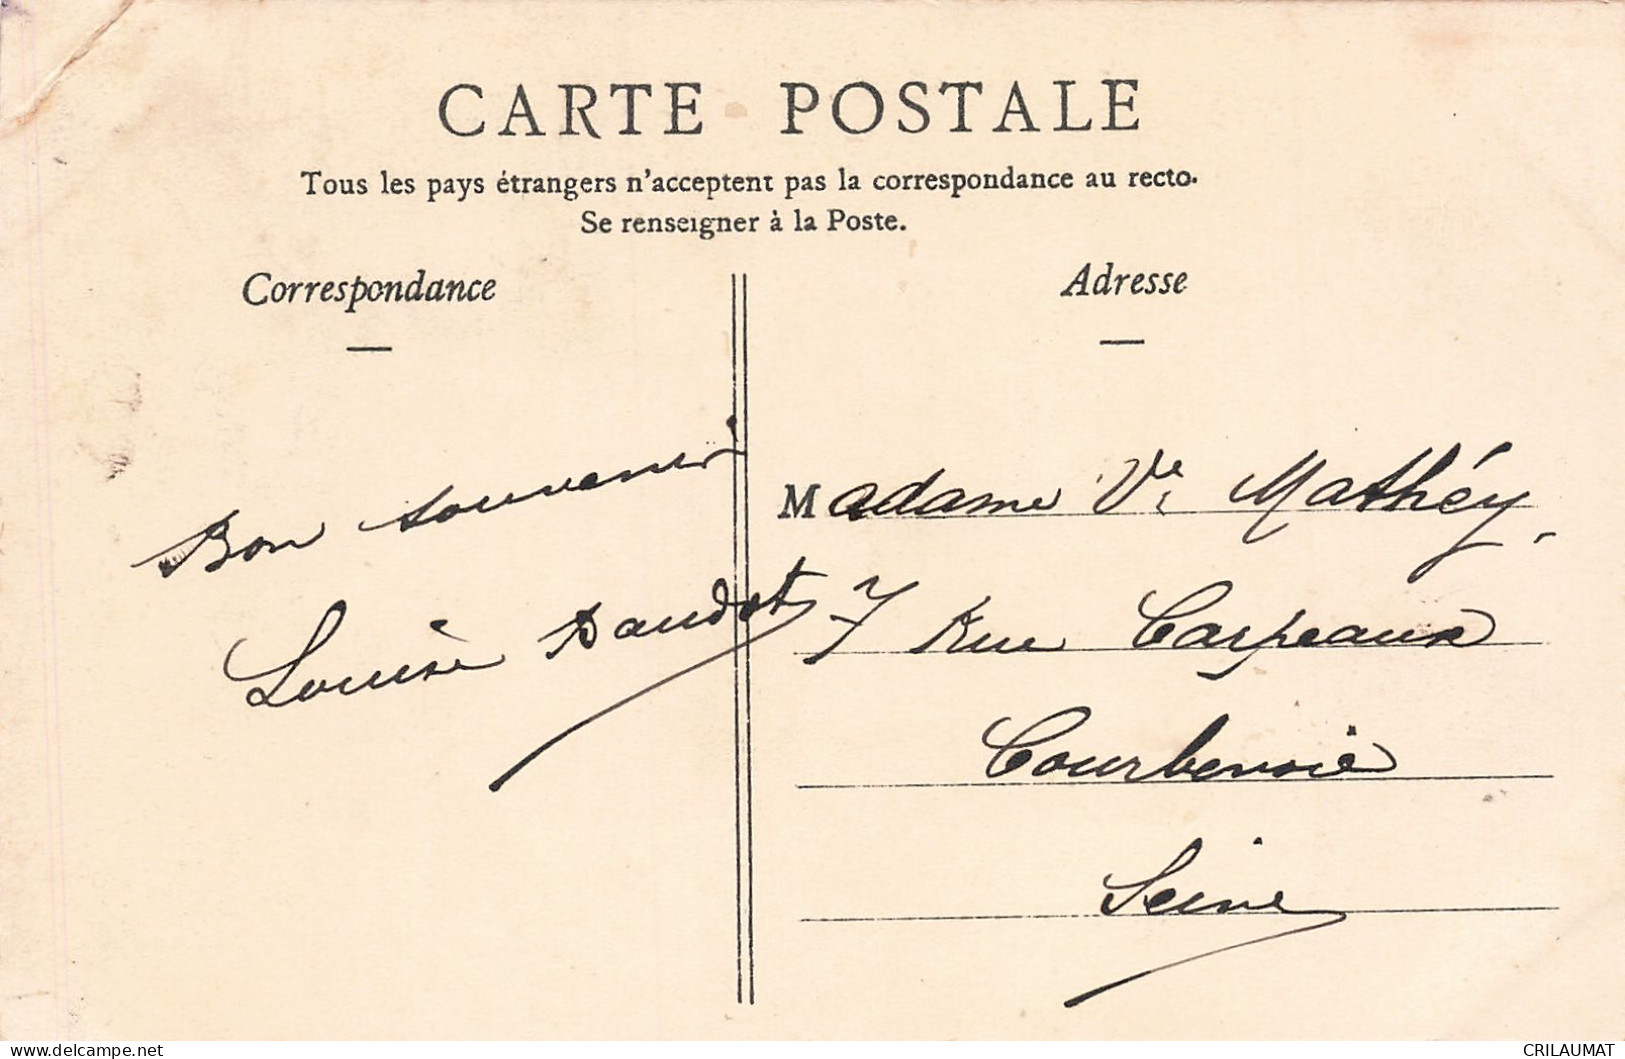 CARTE POSTALE
Tous les pays étrangers n'acceptent pas la correspondance au recto.
Se renseigner à la Poste.
Correspondance
Bon souvenir
Louise Daudet
Adresse
Madame Ve Mathéy,
7 Rue Carpeaux
Courbevoie
Seine
delcampe.net
CRILAUMAT